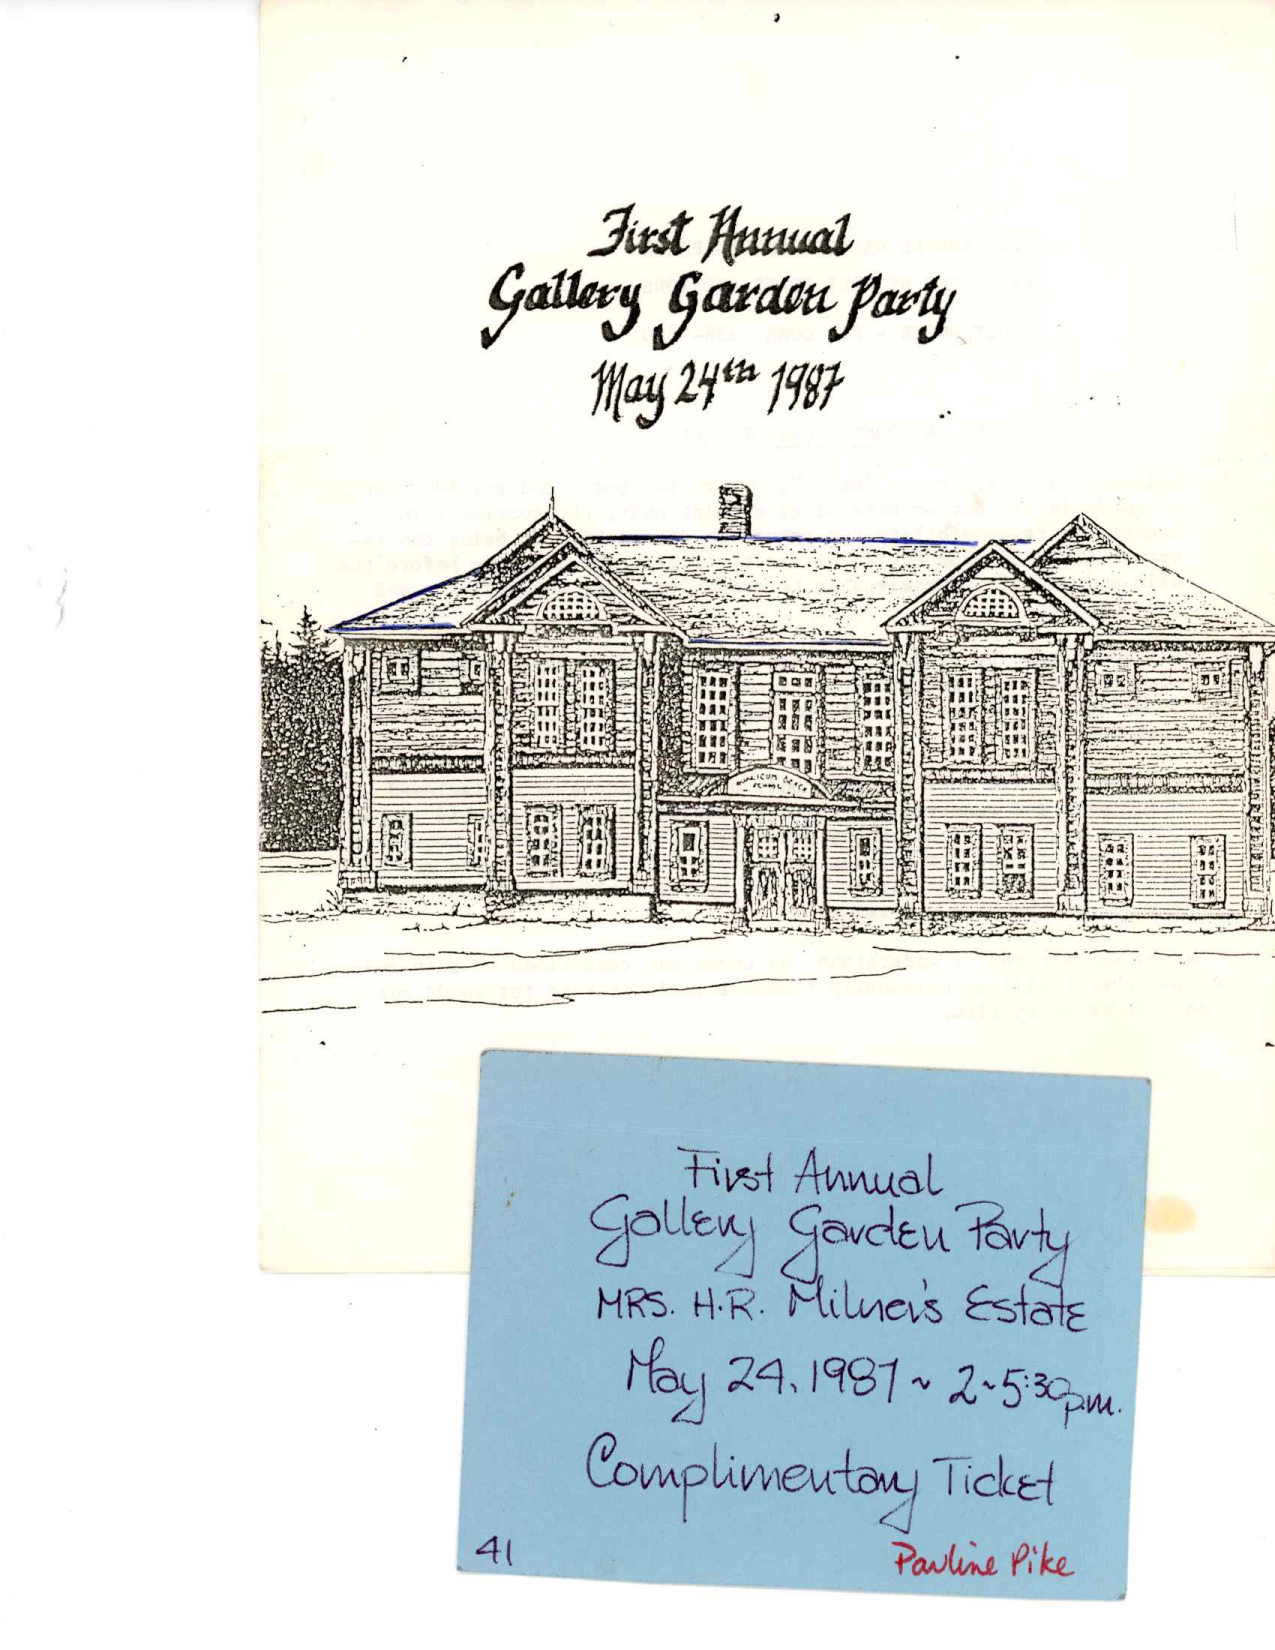 First Annual
Gallery Garden Party
May 24th 1987
QUALICUM BEACH
SCHOOL
First Annual
Gallery Garden Party
MRS. H.R. Milner's Estate
May 24, 1987 ~ 2~5:30 p.m.
Complimentary Ticket
41
Pauline Pike